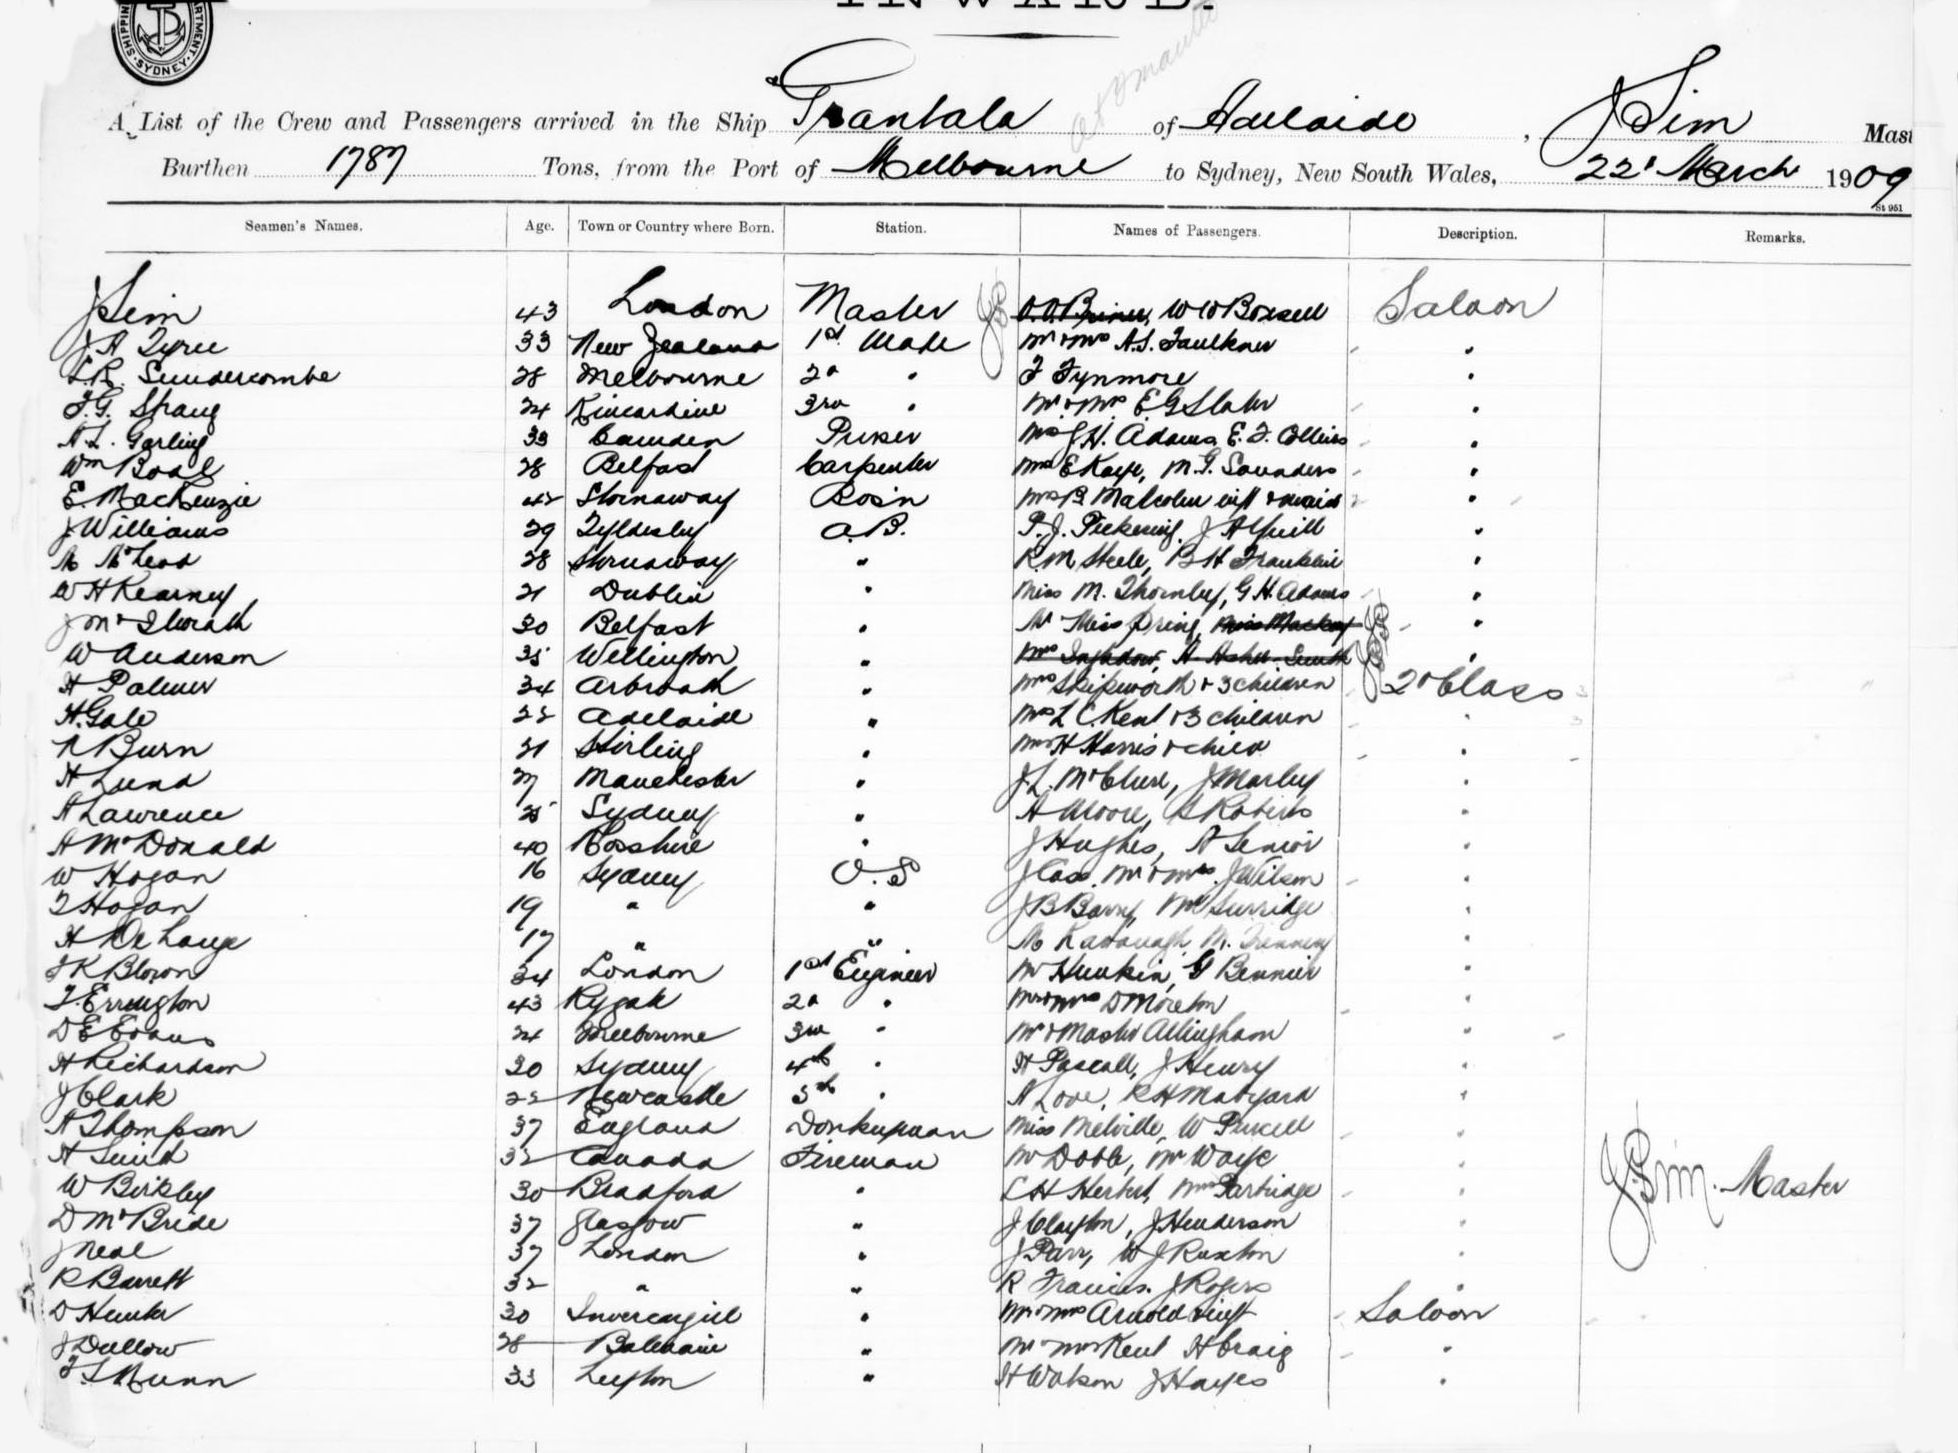 SYDNEY
A List of the Crew and Passengers arrived in the Ship Grantala of Adelaide, J Sim Mast
Burthen 1787 Tons, from the Port of Melbourne to Sydney, New South Wales, 22d March 1909
St 951
Seamen's Names. Age. Town or Country where Born. Station. Names of Passengers. Description. Remarks.
J Sim 43 London Master W W Boxsell Saloon
J. A Tyree 33 New Zealand 1st Mate Mr & Mrs A.S. Faulkner "
L.R. Sundercombe 28 Melbourne 2d " F Fynmore "
F.G. Strang 24 Kincardine 3rd " Mr & Mrs E G Slater "
A.L. Garling 33 Camden Purser Mrs J H. Adams, E. F. Collins "
Wm Boal 28 Belfast Carpenter Mrs E Kaye, M. G. Saunders "
E. MacKenzie 42 Stornaway Bos'n Mrs B. Malcolm inft & maid "
J Williams 29 Tyldesley A.B. P. J. Pickering, J A Quill "
M McLeod 28 Stornaway " R.M Steele, B H Franklin "
W H Kearney 21 Dublin " Miss M. Thornley, G H. Adams "
J McIlwrath 30 Belfast " Mr Miss Pring, Miss Mackay "
W Anderson 35 Wellington " Mrs A Asher Smith "
H Palmer 34 Arbroath " Mrs Skipworth & 3 children 2d Class
H. Gale 22 Adelaide " Mrs L C. Kent & 3 children "
R Burn 21 Stirling " Mrs H Harris & child "
H Lund 27 Manchester " J L. McClure, J Marley "
A Lawrence 25 Sydney " A Moore, S Roberts "
A McDonald 40 Rosshire " J Hughes, A Senior "
W Hogan 16 Sydney O.S J Cass. Mr & Mrs. J Wilson "
T Hogan 19 " " J B Barry, Mr Surridge "
H De Lange 17 " " M Kavanagh M. "
J K Blown 34 London 1st Engineer Mr Hunkin, G Bennier "
T Errington 43 2d " Mr & Mrs D Moreton "
D E Evans 24 Melbourne 3rd " Mr & Master Allingham "
H Richardson 20 Sydney 4th " H Pascall, J Henry "
J Clark 22 Newcastle 5th " A Love, R H Mabyard "
A Thompson 37 England Donkeyman Miss Melville, W Purcell "
A Luird 32 Canada Fireman Mr Doble, Mr Waye "
W Birkley 30 Bradford " L H Herbert, Mrs Partridge " J Sim. Master
D McBride 37 Glasgow " J Clayton, J Henderson "
J Neal 37 London " J Parr, W J Ruxton "
R Barrett 32 " " R Francis. J Rogers "
D Hunter 30 Invercargill " Mr & Mrs Arnold & inft Saloon
J Dullow 28 Balmain " Mr Mrs Kent H Craig "
F S Munn 33 Leyton " H Watson J Hayes "